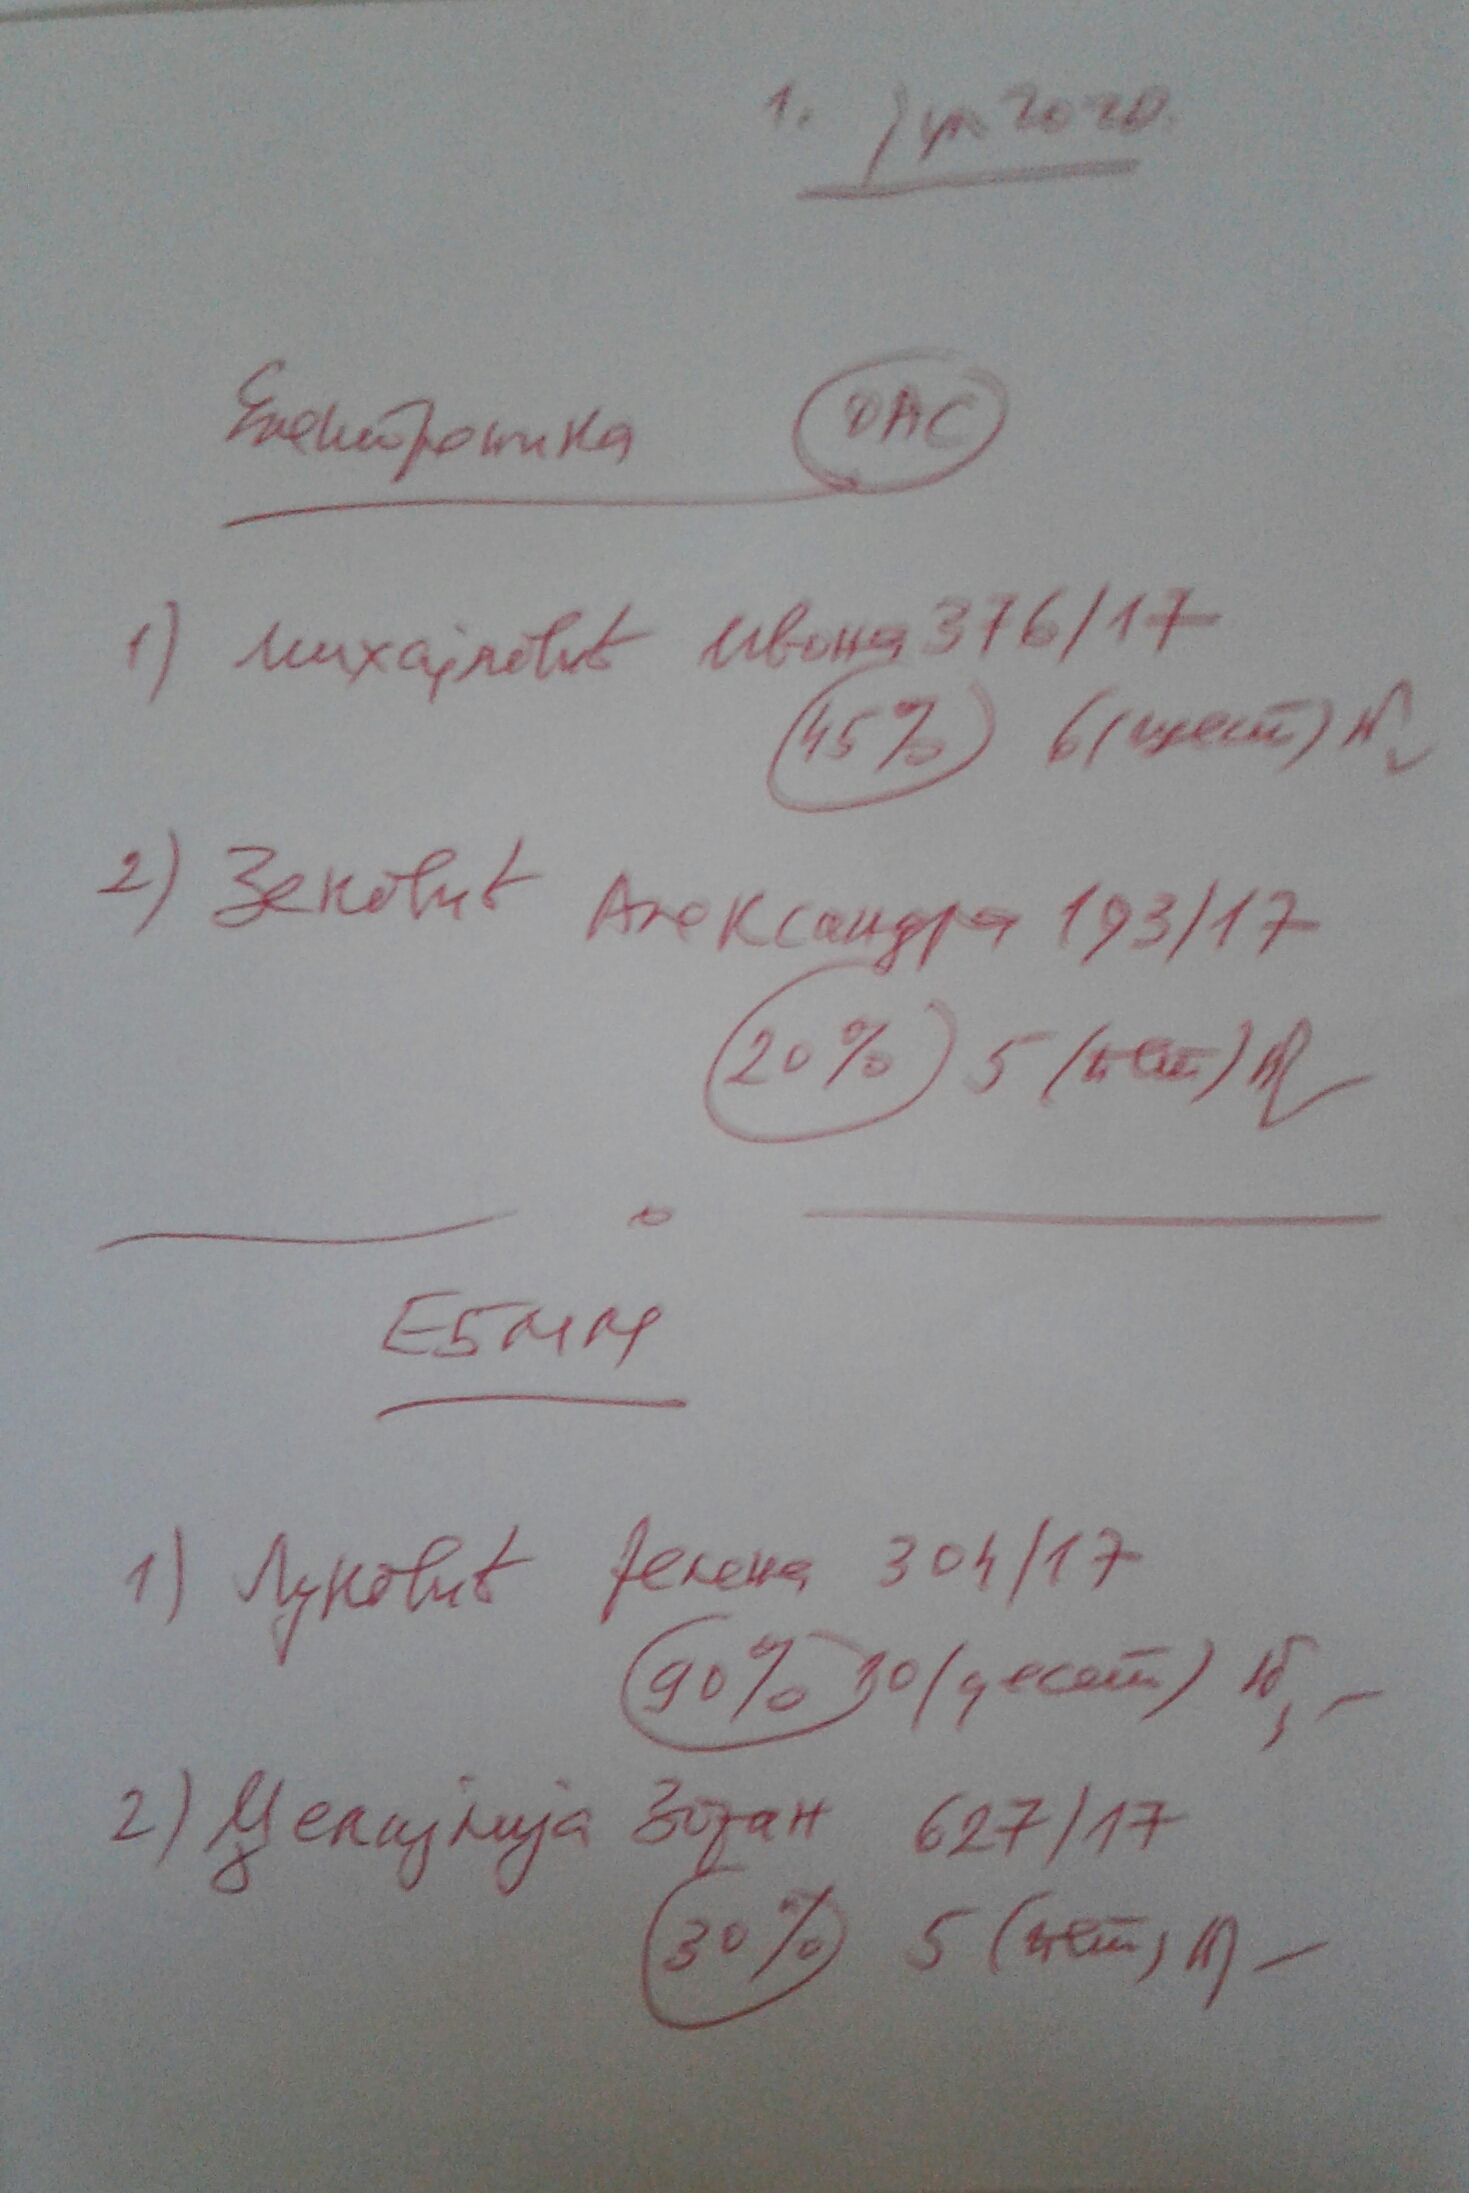 1. јул 2020.
Електроника ОАС
1) Михајловић Ивона 376/17
45% 6 (шест)
2) Зековић Александра 193/17
20% 5 (пет)
ЕБММ
1) Луковић Јелена 304/17
90% 10 (десет)
2) Зоран 627/17
30% 5 (пет)